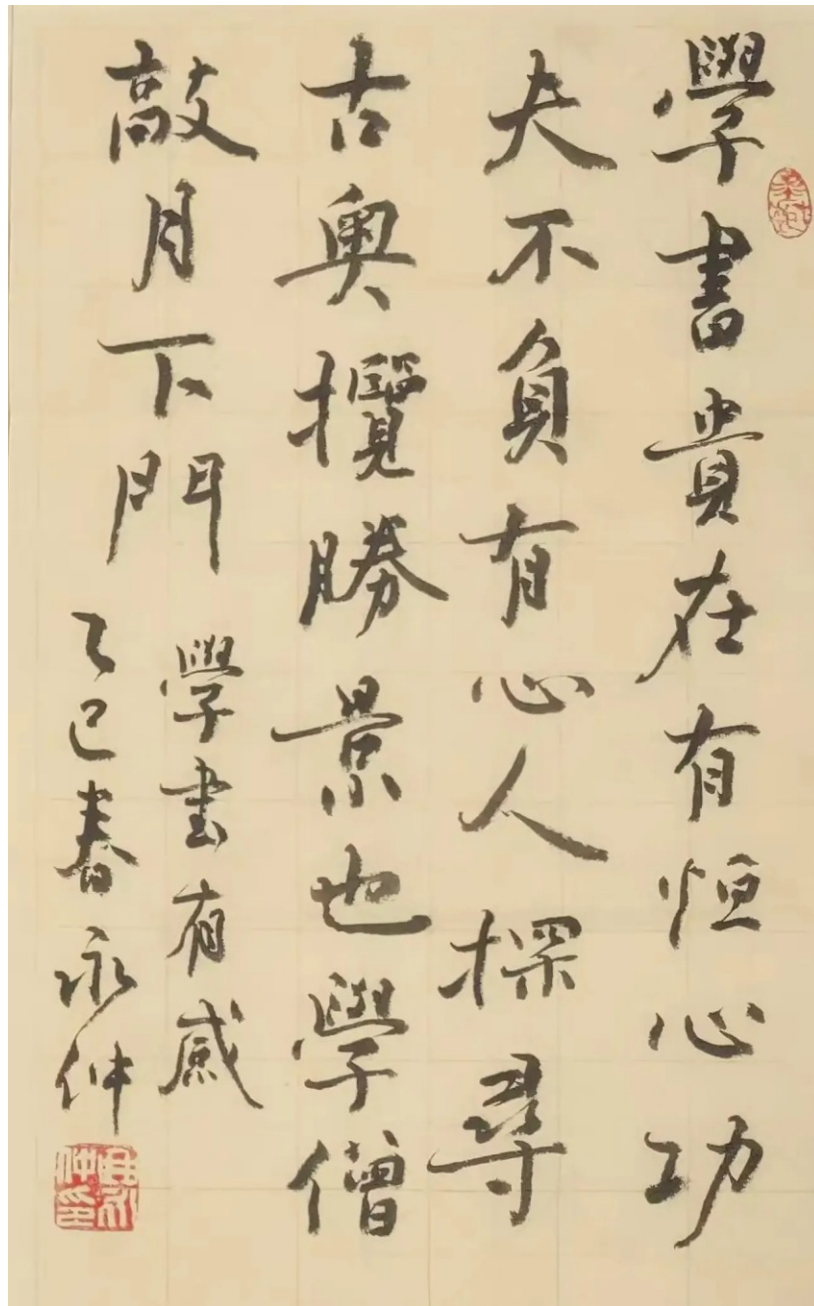 學書貴在有恒心功
夫不負有心人探尋
古奧攬勝景也學僧
敲月下門
學書有感
乙巳春永仲